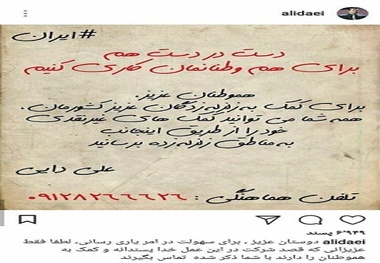 alidaei
#ایران
دست در دست هم
برای هم وطنانمان کاری کنیم
هموطنان عزیز.
برای کمک به زلزله زدگان عزیز کشورمان.
همه شما می توانید کمک های غیرنقدی
خود را از طریق اینجانب
به مناطق زلزله زده برسانید
علی دایی
تلفن هماهنگی : ۰۹۱۲۸۲۶۶۶۲۶
۶٬۹۴۹ پسند
alidaei دوستان عزیز . برای سهولت در امر یاری رسانی. لطفا فقط
عزیزانی که قصد شرکت در این عمل خدا پسندانه و کمک به
هموطنان را دارند با شما ذکر شده تماس بگیرند